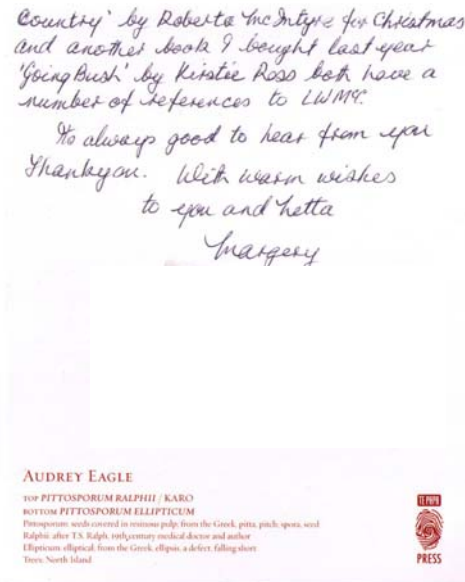 Country' by Roberta McIntyre for Christmas
and another book I bought last year
'Going Bush' by Kirstie Ross both have a
number of references to LWMC.
Its always good to hear from you
Thankyou. With warm wishes
to you and hetta
Margery
AUDREY EAGLE
TOP PITTOSPORUM RALPHII / KARO
BOTTOM PITTOSPORUM ELLIPTICUM
Pittosporum: seeds covered in resinous pulp; from the Greek, pitta, pitch; spora, seed
Ralphii: after T.S. Ralph, 19th century medical doctor and author
Ellipticum: elliptical; from the Greek, ellipsis, a defect, falling short
Trees, North Island
TE PAPA
PRESS